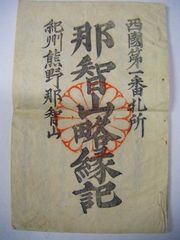 西國第一番札所
那智山略縁記
紀州熊野那智山